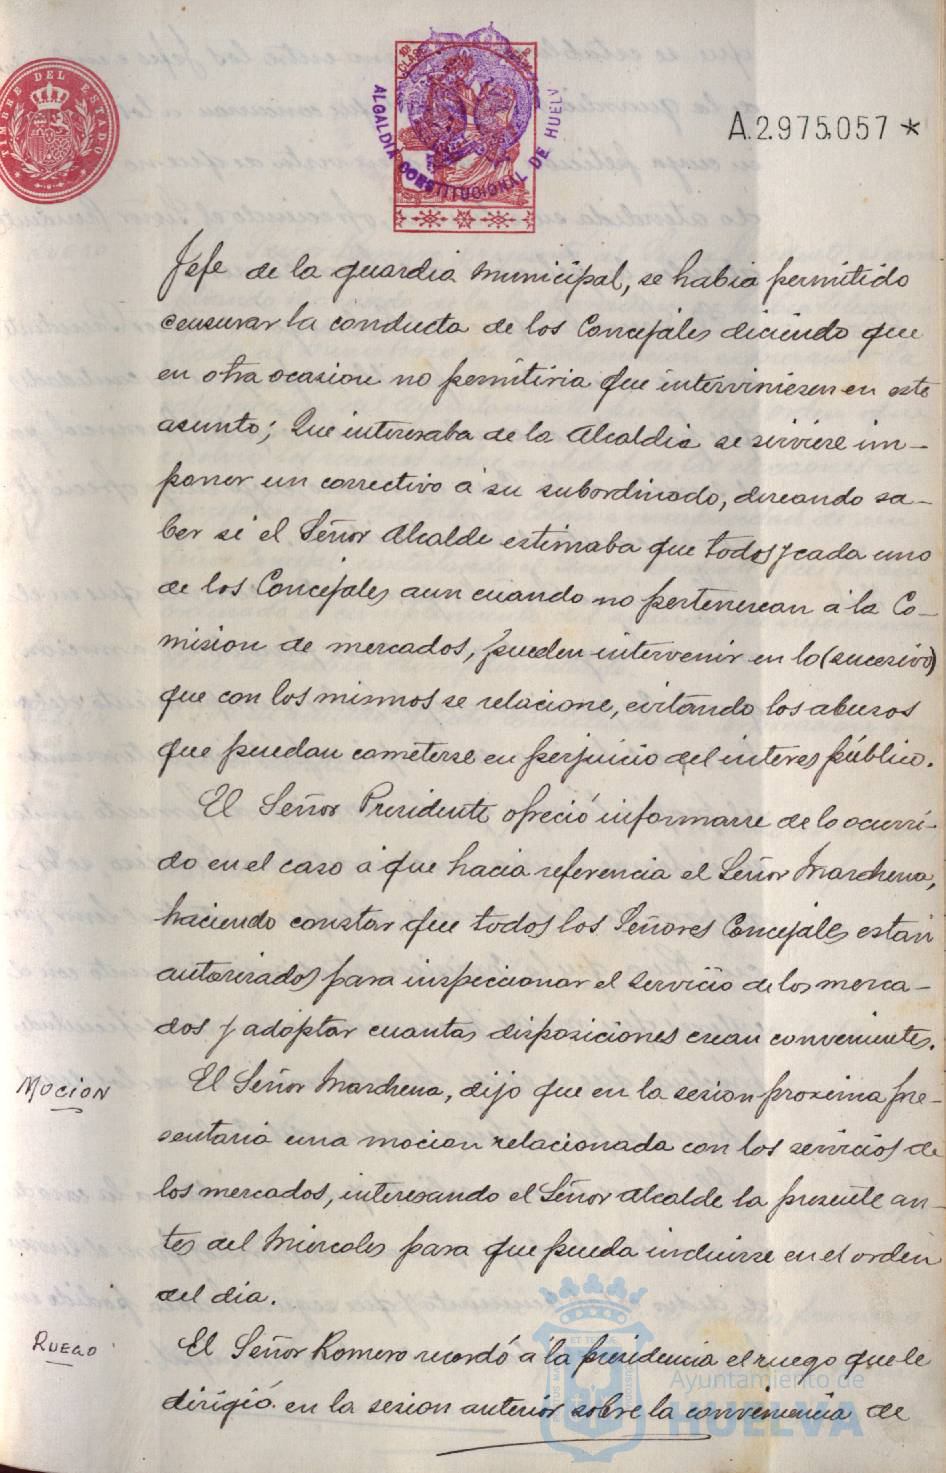 TIMBRE DEL ESTADO
ALCALDIA CONSTITUCIONAL DE HUELVA
A.2.975,057 *
Jefe de la guardia Municipal, se habia permitido
censurar la conducta de los Concejales diciendo que
en otra ocasion no permitiria que interviniesen en este
asunto; Que interesaba de la Alcaldia se sirviese im-
poner un correctivo á su subordinado, deseando sa-
ber si el Señor Alcalde estimaba que todos y cada uno
de los Concejales aun cuando no pertenezcan á la Co-
mision de mercados, pueden intervenir en lo (sucesivo)
que con los mismos se relacione, evitando los abusos
que puedan cometerse en perjuicio del interes público.
El Señor Presidente ofreció informarse de lo ocurri-
do en el caso á que hacia referencia el Señor Marchena,
haciendo constar que todos los Señores Concejales están
autorizados para inspeccionar el servicio de los merca-
dos y adoptar cuantas disposiciones crean convenientes.
MOCION
El Señor Marchena, dijo que en la sesion proxima pre-
sentaria una mocion relacionada con los servicios de
los mercados, interesando el Señor Alcalde la presente an-
tes del Miercoles para que pueda incluirse en el orden
del dia.
RUEGO
El Señor Romero recordó á la presidencia el ruego que le
dirigió en la sesion anterior sobre la conveniencia de
Ayuntamiento de
HUELVA